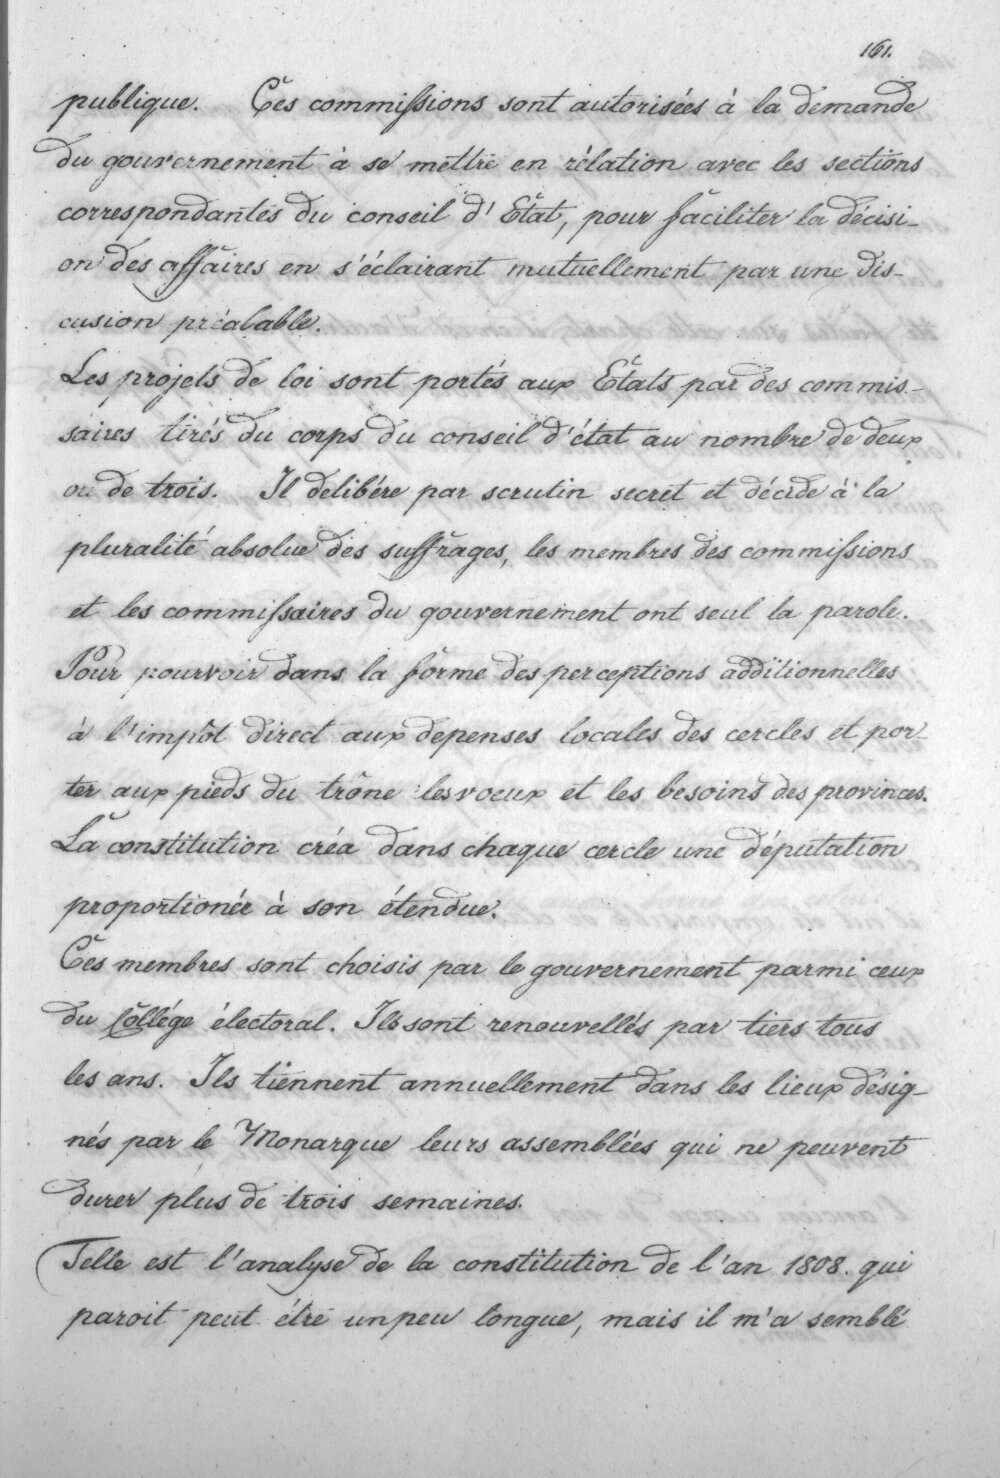 161.
publique. Ces commissions sont autorisées à la demande
du gouvernement à se mettre en rélation avec les sections
correspondantes du conseil d'État, pour faciliter la décisi-
on des affaires en s'éclairant mutuellement par une dis-
cusion préalable.
Les projets de loi sont portés aux États par des commis-
saires tirés du corps du conseil d'état au nombre de deux
ou de trois. Il delibére par scrutin secret et décide à la
pluralité absolue des suffrages, les membres des commissions
et les commissaires du gouvernement ont seul la parole.
Pour pourvoir dans la forme des perceptions additionnelles
à l'impôt direct aux depenses locales des cercles et por-
ter aux pieds du trône les voeux et les besoins des provinces.
La constitution créa dans chaque cercle une députation
proportionée à son étendue.
Ces membres sont choisis par le gouvernement parmi ceux
du Collége électoral. Ils sont renouvellés par tiers tous
les ans. Ils tiennent annuellement dans les lieux désig-
nés par le Monarque leurs assemblées qui ne peuvent
durer plus de trois semaines.
Telle est l'analyse de la constitution de l'an 1808. qui
paroit peut étre un peu longue, mais il m'a semblé